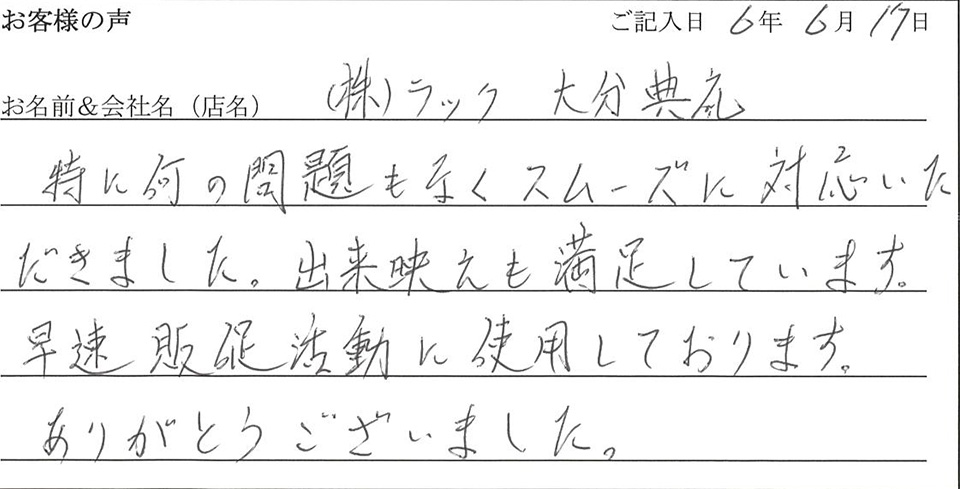 お客様の声 ご記入日 6年 6月 17日
お名前&会社名（店名） (株)ラック 大分典礼
特に何の問題もなくスムーズに対応いた
だきました。出来映えも満足しています。
早速販促活動に使用しております。
ありがとうございました。